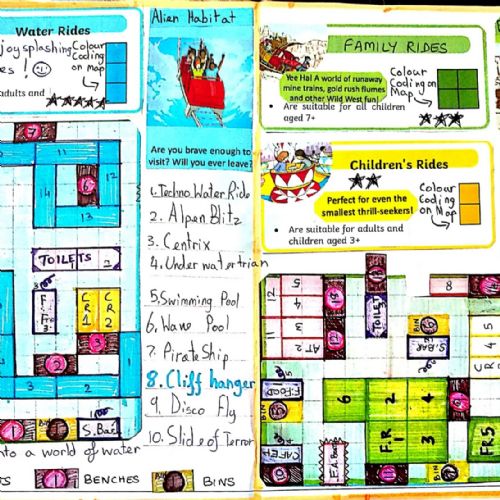 Water Rides
joy splashing
es! 
Colour
Coding
on
map
adults and
7
11
12
14
6
13
TOILETS
1
2
F
F
3
C
R
1
C
R
2
3
2
1
3
2
1
1
S.Bar
nto a world of water
TS
1
BENCHES
1
BINS
Alien Habitat
Are you brave enough to
visit? Will you ever leave?
1. Techno Water Ride
2. Alpen Blitz
3. Centrix
4. Under watertrian
5. Swimming Pool
6. Wave Pool
7. Pirate Ship
8. Cliff hanger
9. Disco Fly
10. Slide of Terror
FAMILY RIDES
Yee Ha! A world of runaway
mine trains, gold rush flumes
and other Wild West fun!
Colour
Coding on
Map
• Are suitable for all children
aged 7+
Children's Rides
Perfect for even the
smallest thrill-seekers!
Colour
Coding
on Map
• Are suitable for adults and
children aged 3+
12
11
5
4
3
AT 2
TOILETS
8
BIN
S.BAR
5
4
CR
F.FOOD
BIN
CAFEH
6
2
F.R
1
3
4
9
FR5
BIN